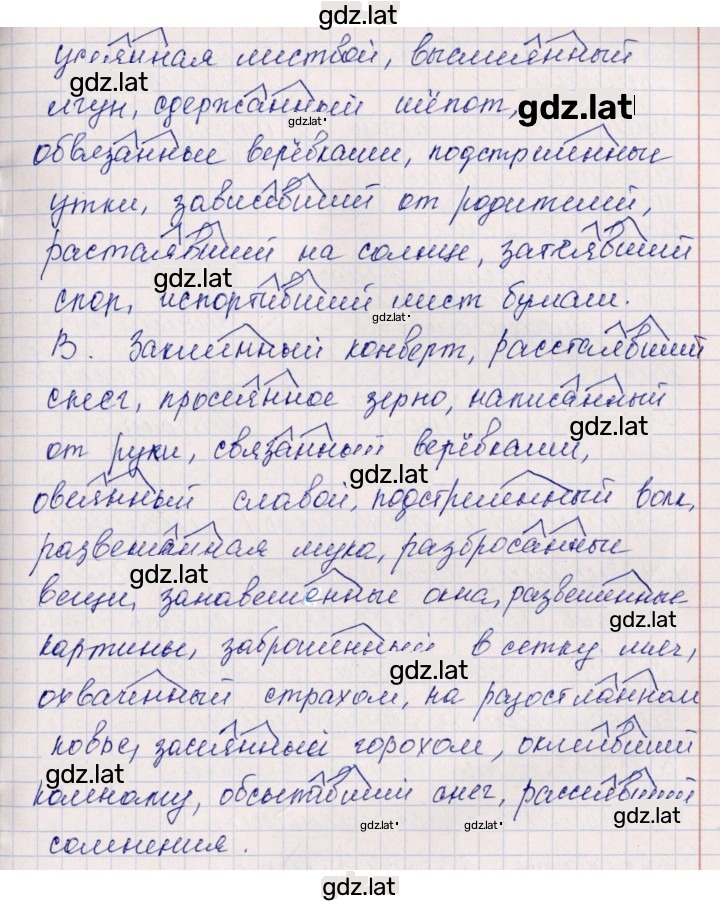 gdz.lat
усеянная листвой, высмеянный
gdz.lat
лгун, сдержанный шёпот, gdz.lat
gdz.lat
обвязанные верёвками, подстреленные
утки, зависевший от родителей,
растаявший на солнце, затеявший
gdz.lat
спор, испортивший лист бумаги.
gdz.lat
В. Заклеенный конверт, расстаявший
снег, просеянное зерно, написанный
gdz.lat
от руки, связанный верёвками,
gdz.lat
овеянный славой, подстреленный волк,
развешанная мука, разбросанные
gdz.lat
вещи, занавешенные окна, развешенные
gdz.lat
картины, заброшенный в сетку мяч,
gdz.lat
охваченный страхом, на разостланном
ковре, засеянный горохом, оклеивший
gdz.lat
комнату, обсыпавший снег, рассеявший
gdz.lat
gdz.lat gdz.lat
сомнения.
gdz.lat